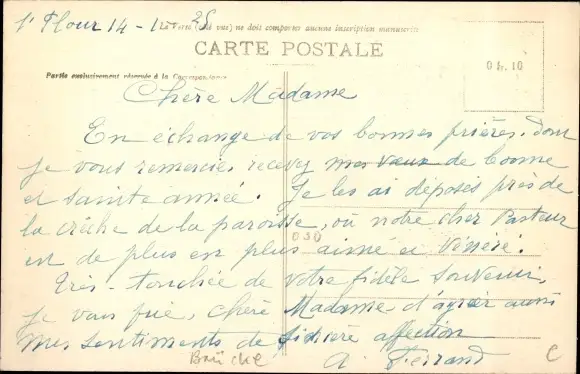 St Flour 14-1-25
(Ce côté vue) ne doit comporter aucune inscription manuscrite
CARTE POSTALE
Partie exclusivement réservée à la Correspondance
0 fr. 10
Chère Madame
En échange de vos bonnes prières, dont
je vous remercie, recevez mes vœux de bonne
et sainte année. Je les ai déposés près de
la crèche de la paroisse, où notre cher Pasteur
est de plus en plus aimé et vénéré.
Très-touchée de votre fidèle souvenir,
je vous prie, chère Madame d'agréer aussi
mes sentiments de sincère affection
A. Ferrand
Brüche
C